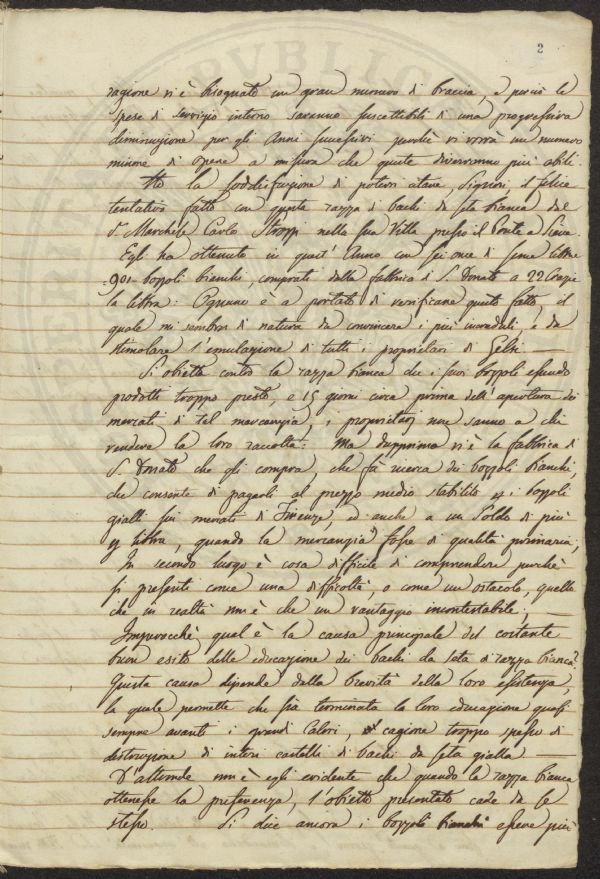 2
ragione vi è bisognato un gran numero di braccia, e perciò le
spese di servizio interno saranno suscettibili di una progressiva
diminuzione per gli Anni successivi perchè vi vorrà un numero
minore di opere a misura che queste diverranno più abili.
Ho la soddisfazione di potervi citare, Signori, il felice
tentativo fatto con questa razza di bachi da seta bianca dal
S.r Marchese Carlo Strozzi nella sua Villa presso il Ponte a Sieve.
Egli ha ottenuto in quest' Anno con sei once di seme libbre
901 bozzoli bianchi, comprati dalla fabbrica di S. Donato a 22 Crazie
la libbra: Ognuno è a portata di verificare questo fatto, il
quale mi sembra di natura da convincere i più increduli, e da
stimolare l'emulazione di tutti i proprietari di Gelsi. —
Si obietta contro la razza bianca che i suoi bozzoli essendo
prodotti troppo presto, e 15 giorni circa prima dell'apertura dei
mercati di tal mercanzia, i proprietarj non sanno a chi
vendere la loro raccolta: Ma dapprima vi è la fabbrica di
S. Donato che gli compra, che fà ricerca dei bozzoli bianchi,
che consente di pagarli al prezzo medio stabilito p i bozzoli
gialli sui mercati di Firenze, ed anche a un Soldo di più
p libbra, quando la mercanzia fosse di qualità primaria;
In secondo luogo è cosa difficile di comprendere perchè
si presenti come una difficoltà, o come un ostacolo, quello
che in realtà non è che un vantaggio incontestabile. —
Imperocchè qual è la causa principale del costante
buon esito delle educazione dei bachi da seta di razza bianca?
Questa causa dipende dalla brevità della loro esistenza,
la quale permette che sia terminata la loro educazione quasi
sempre avanti i grandi Calori, cagione troppo spesso di
distruzione di interi castelli di bachi da seta gialla —
D'altronde non è egli evidente che quando la razza bianca
ottenesse la preferenza, l'obietto presentato cade da se
stesso. Si dice ancora i bozzoli bianchi essere più